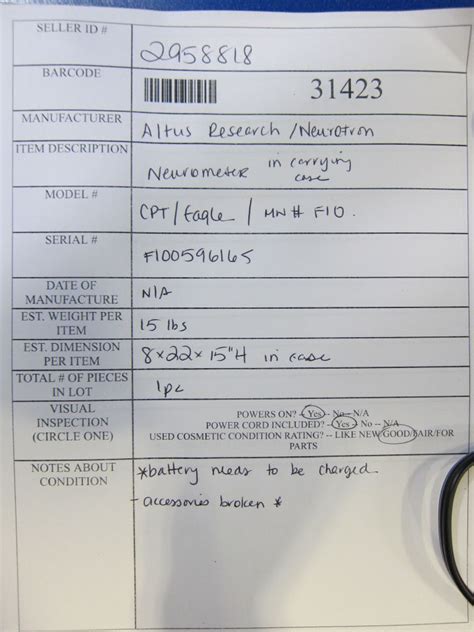 SELLER ID # 2958818
BARCODE 31423
MANUFACTURER Altus Research / Neurotron
ITEM DESCRIPTION Neurometer in carrying
case
MODEL # CPT / Eagle / MN# F10.
SERIAL # F100596165
DATE OF
MANUFACTURE N/A
EST. WEIGHT PER
ITEM 15 lbs
EST. DIMENSION
PER ITEM 8x22x15"H in case
TOTAL # OF PIECES
IN LOT 1pc
VISUAL
INSPECTION
(CIRCLE ONE)
POWERS ON? --Yes-- No--N/A
POWER CORD INCLUDED? --Yes -- No -- N/A
USED COSMETIC CONDITION RATING? -- LIKE NEW/GOOD/FAIR/FOR
PARTS
NOTES ABOUT
CONDITION
*battery needs to be charged
- accessories broken *